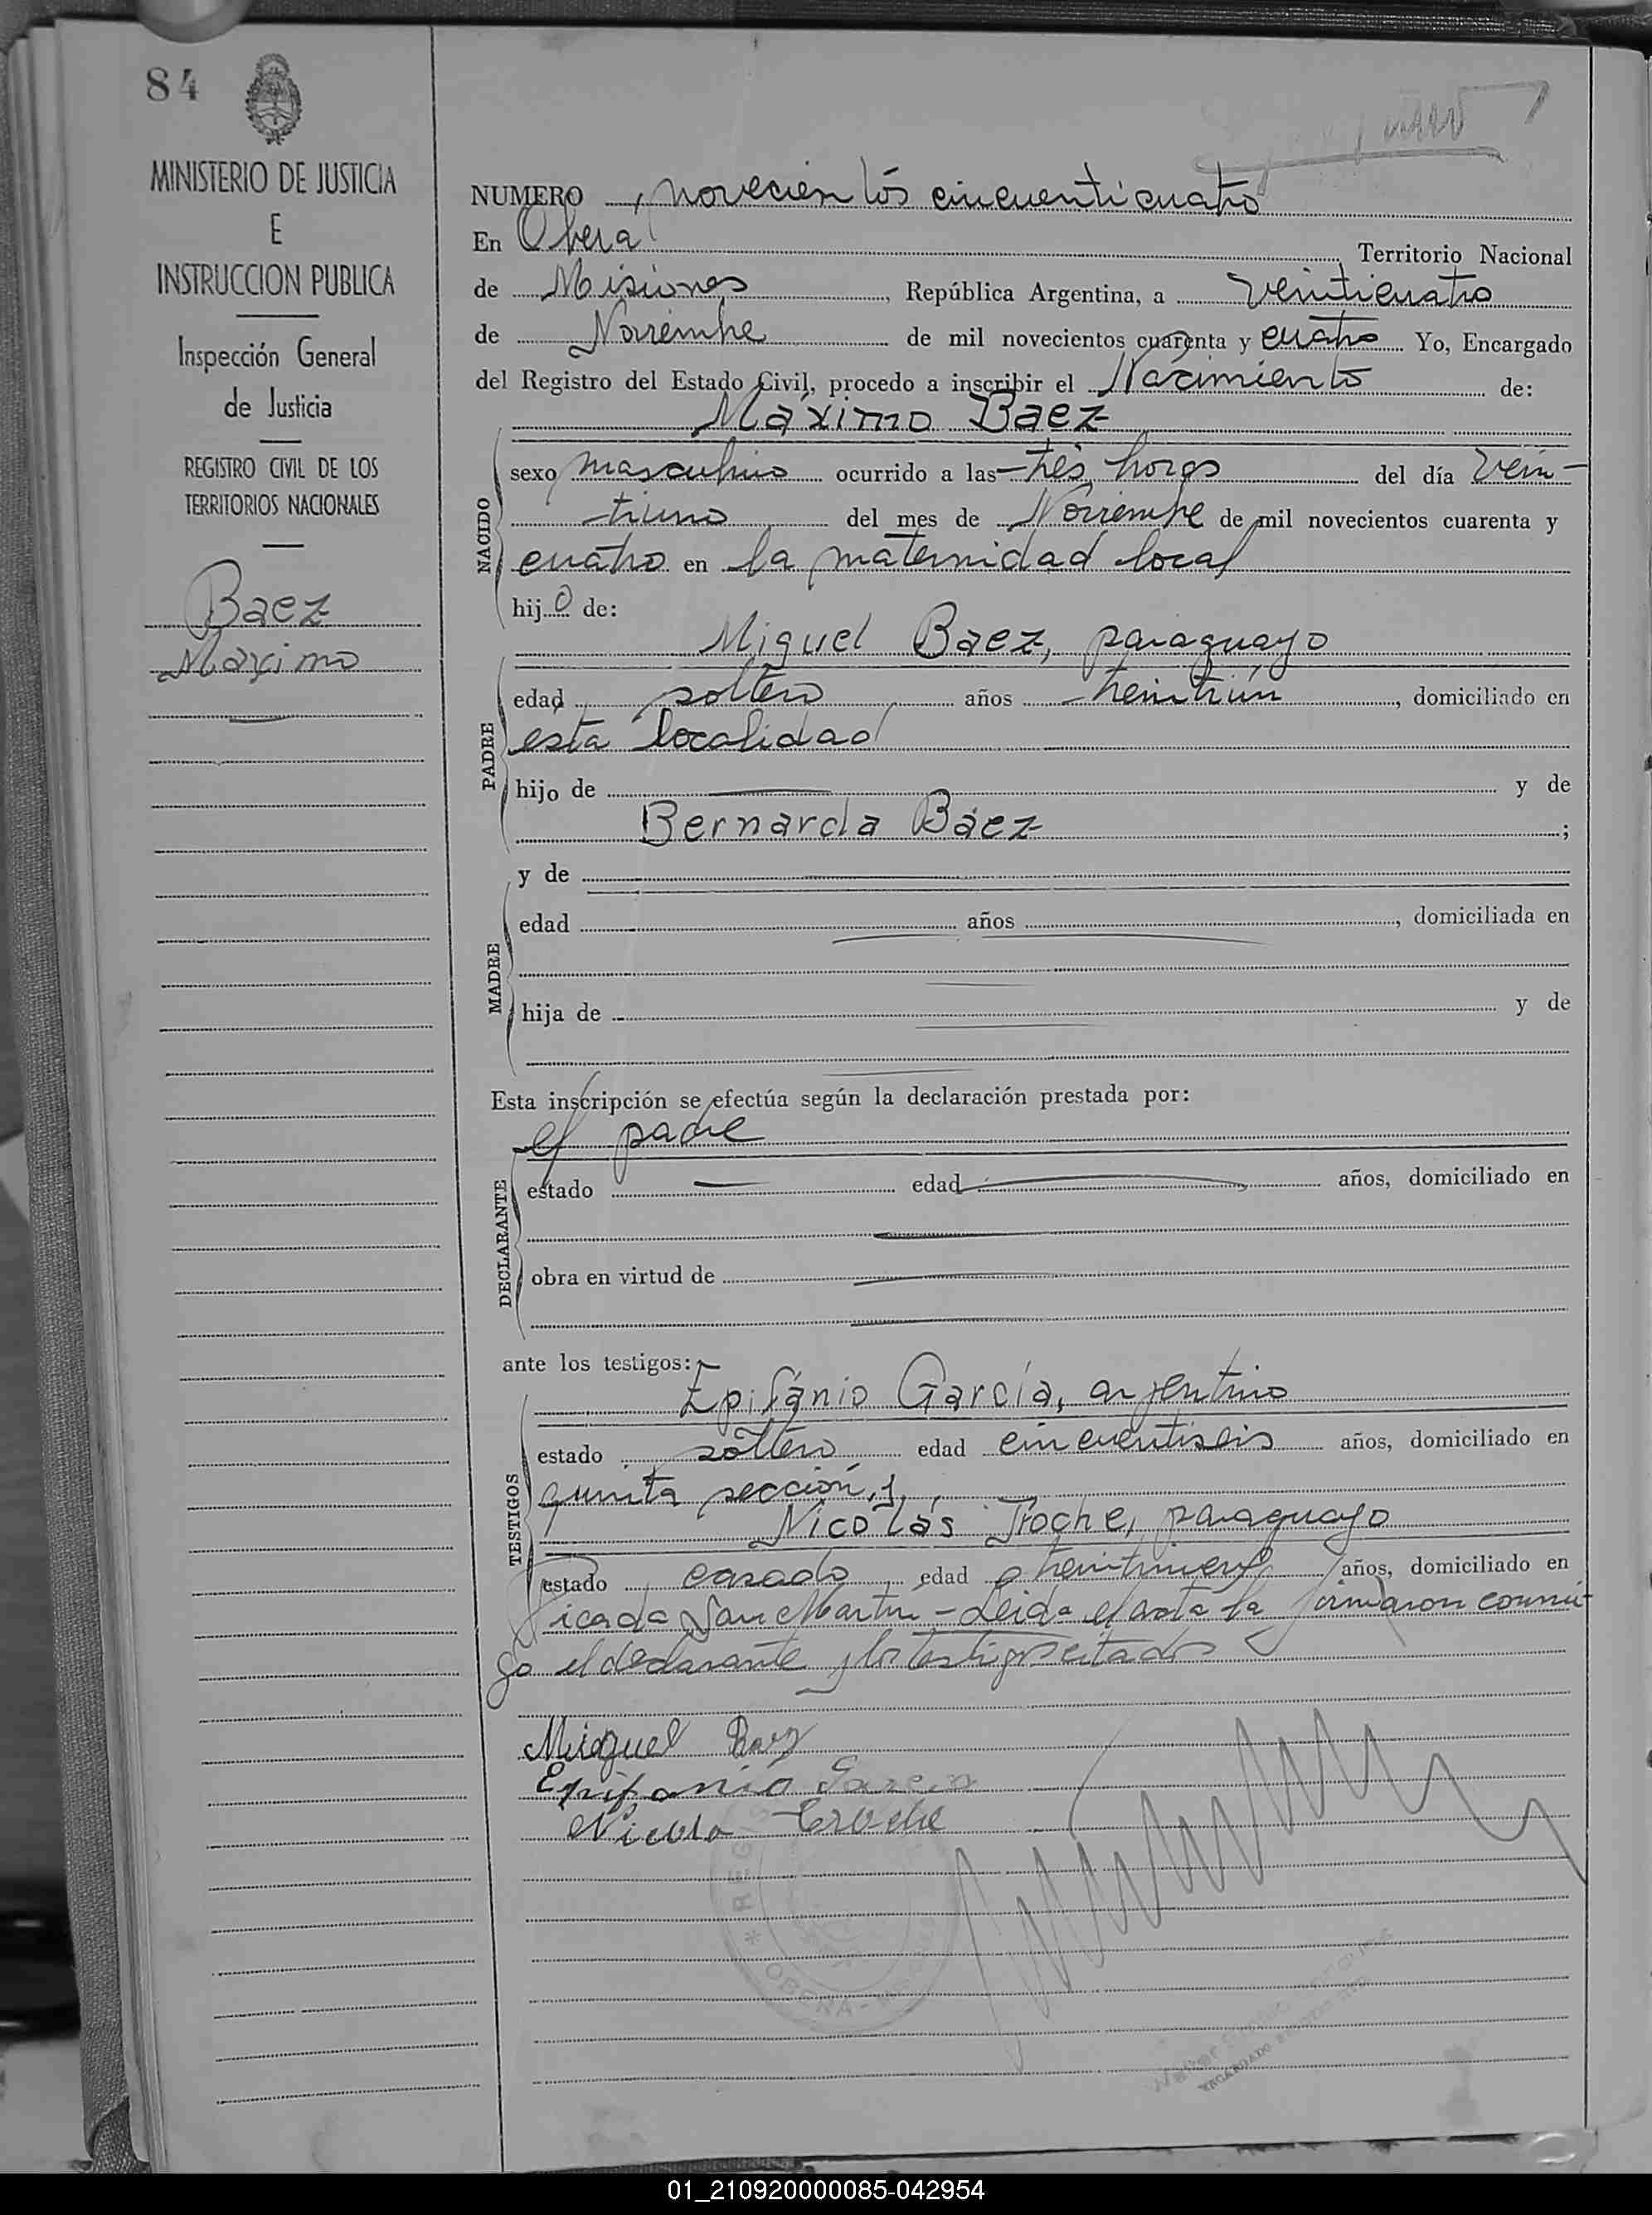 84
MINISTERIO DE JUSTICIA
E
INSTRUCCION PUBLICA
Inspección General
de Justicia
REGISTRO CIVIL DE LOS
TERRITORIOS NACIONALES
Baez
Maximo
NUMERO novecientos cincuenticuatro
En Obera Territorio Nacional
de Misiones, República Argentina, a veinticuatro
de Noviembre de mil novecientos cuarenta y cuatro Yo, Encargado
del Registro del Estado Civil, procedo a inscribir el Nacimiento de:
Máximo Baez
NACIDO
sexo masculino ocurrido a las tres horas del día vein-
tiuno del mes de Noviembre de mil novecientos cuarenta y
cuatro en la maternidad local
hijo de:
Miguel Baez, paraguayo
PADRE
edad soltero años treintiún, domiciliado en
esta localidad
hijo de y de
Bernarda Báez ;
y de
MADRE
edad años , domiciliada en
hija de y de
Esta inscripción se efectúa según la declaración prestada por:
el padre
DECLARANTE
estado edad años, domiciliado en
obra en virtud de
ante los testigos:
Epifánio García, argentino
TESTIGOS
estado soltero edad cincuentiseis años, domiciliado en
quinta sección, 1,
Nicolás Troche, paraguayo
estado casado edad treintinueve años, domiciliado en
Picada San Martin - Leida el acta la firmaron conmi-
go el declarante y los testigos citados
Miguel Baez
Epifanio Garcia
Nicola Troche
REGIS
OBERA -
ENCARGADO
01_210920000085-042954